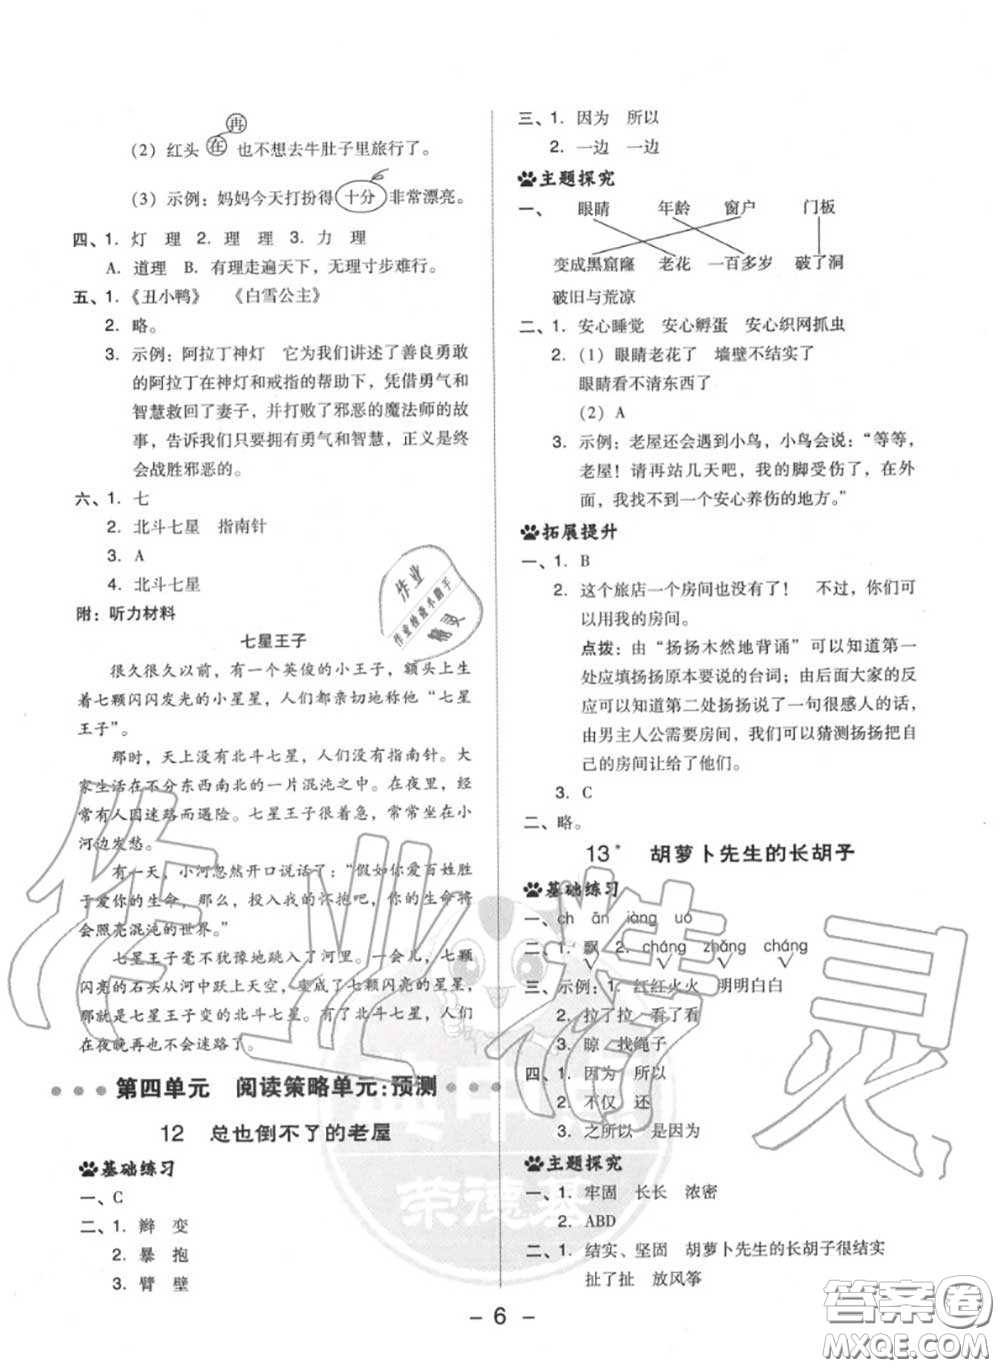 再
(2) 红头 在 也不想去牛肚子里旅行了。
(3) 示例：妈妈今天打扮得 十分 非常漂亮。
四、1. 灯 理 2. 理 理 3. 力 理
A. 道理 B. 有理走遍天下，无理寸步难行。
五、1.《丑小鸭》 《白雪公主》
2. 略。
3. 示例：阿拉丁神灯 它为我们讲述了善良勇敢
的阿拉丁在神灯和戒指的帮助下，凭借勇气和
智慧救回了妻子，并打败了邪恶的魔法师的故
事，告诉我们只要拥有勇气和智慧，正义是终
会战胜邪恶的。
六、1. 七
2. 北斗七星 指南针
3. A
4. 北斗七星
附：听力材料
七星王子
很久很久以前，有一个英俊的小王子，额头上生
着七颗闪闪发光的小星星，人们都亲切地称他“七星
王子”。
那时，天上没有北斗七星，人们没有指南针。大
家生活在不分东西南北的一片混沌之中。在夜里，经
常有人因迷路而遇难。七星王子很着急，常常坐在小
河边发愁。
有一天，小河忽然开口说话了：“假如你能为百姓
献出你的生命，那么，投入我的怀抱吧，你的生命将
会照亮混沌的世界。”
七星王子毫不犹豫地跳入了河里。一会儿，七颗
闪亮的石头从河中跃上天空，变成了七颗闪亮的星星，
那就是七星王子变的北斗七星。有了北斗七星，人们
在夜晚再也不会迷路了。
第四单元 阅读策略单元：预测
12 总也倒不了的老屋
基础练习
一、C
二、1. 辫 变
2. 暴 抱
3. 臂 壁
三、1. 因为 所以
2. 一边 一边
主题探究
一、 眼睛 年龄 窗户 门板
变成黑窟窿 老花 一百多岁 破了洞
破旧与荒凉
二、1. 安心睡觉 安心孵蛋 安心织网抓虫
2. (1) 眼睛老花了 墙壁不结实了
眼睛看不清东西了
(2) A
3. 示例：老屋还会遇到小鸟，小鸟会说：“等等，
老屋！请再站几天吧，我的脚受伤了，在外
面，我找不到一个安心养伤的地方。”
拓展提升
一、1. B
2. 这个旅店一个房间也没有了！ 不过，你们可
以用我的房间。
点拨：由“扬扬木然地背诵”可以知道第一
处应填扬扬原本要说的台词；由后面大家的反
应可以知道第二处扬扬说了一句很感人的话，
由男主人公需要房间，我们可以猜测扬扬把自
己的房间让给了他们。
3. C
二、略。
13* 胡萝卜先生的长胡子
基础练习
一、ch ān jiàng uó
二、1. 飘 2. cháng zhǎng cháng
三、示例：1. 红红火火 明明白白
2. 拉了拉 看了看
3. 晾 找绳子
四、1. 因为 所以
2. 不仅 还
3. 之所以 是因为
主题探究
一、1. 牢固 长长 浓密
2. ABD
二、1. 结实、坚固 胡萝卜先生的长胡子很结实
扯了扯 放风筝
作业
作业检查小助手
精灵
作业精灵
荣德基
– 6 –
答案圈
MXQE.COM